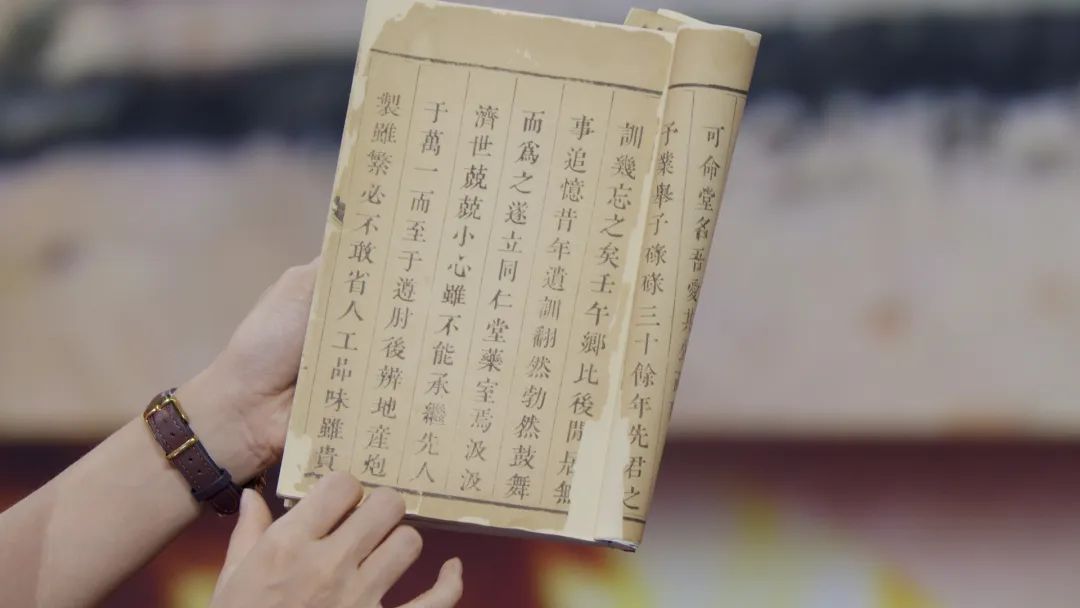 可命堂名吾愛其
予業舉子碌碌三十餘年先君之
訓幾忘之矣壬午鄉比後閒居無
事追憶昔年遺訓翻然勃然鼓舞
而爲之遂立同仁堂藥室焉汲汲
濟世兢兢小心雖不能承繼先人
于萬一而至于遵肘後辨地產炮
製雖繁必不敢省人工品味雖貴